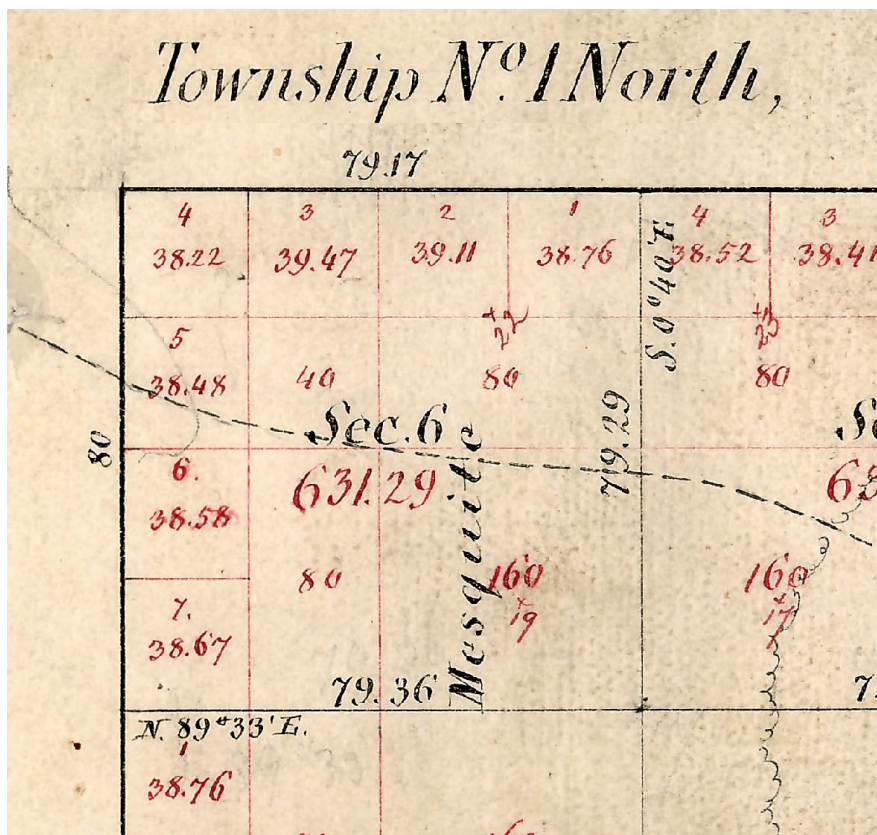 Township Nº. 1 North,
79.17
4 3 2 1 4 3
38.22 39.47 39.11 38.76 38.52 38.41
S. 0°40'E.
22 23
5
38.48 40 80 80
80
Sec. 6
79.29
6.
38.58
631.29
Mesquite
80 160 160
19 17
7.
38.67
79.36
N. 89°33'E.
1
38.76